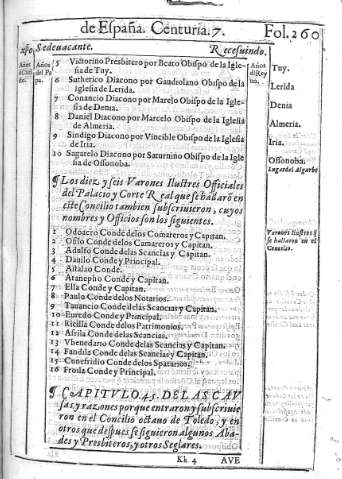 de España. Centuria. 7. Fol. 260
Sedevacante. Recesuindo.
5 Victorino Presbitero por Beato Obispo de la Igle-
sia de Tuy.
6 Sutherico Diacono por Gandeolano Obispo de la
Iglesia de Lerida.
7 Conancio Diacono por Marejo Obispo de la Igle-
sia de Denia.
8 Daniel Diacono por Marcelo Obispo de la Iglesia
de Almeria.
9 Sindigo Diacono por Vincible Obispo de la Iglesia
de Iria.
10 Sagarelo Diacono por Saturnino Obispo de la Igle
sia de Ossonoba.
¶ Los diez y seis Varones Ilustres Officiales
del Palacio y Corte Real que se hallarõ en
este Concilio tambien subscriuieron, cuyos
nombres y Officios son los siguientes.
1 Odoacro Conde de los Camareros y Capitan.
2 Osilo Conde de los Camareros y Capitan.
3 Adulfo Conde de las Scancias y Capitan.
4 Danilo Conde y Principal.
5 Aitalao Conde.
6 Atanepho Conde y Capitan.
7 Ella Conde y Capitan.
8 Paulo Conde de los Notarios.
9 Conde de las Scancias y Capitan.
10 Euredo Conde y Principal.
11 Ricilla Conde de los Patrimonios.
12 Afrila Conde de las Scancias.
13 Vbenedario Conde de las Scancias y Capitan.
14 Fandila Conde de las Scancias y Capitan.
15 Cunefridio Conde de los Spatarios.
16 Froila Conde y Principal.
¶ CAPITVLO. 45. DE LAS CAV
sas y razones porque entraron y subscriuie
ron en el Concilio octauo de Toledo; y en
otros que despues se siguieron algunos Aba-
des y Presbiteros, y otros Seglares.
Kk 4 AVE
Tuy.
Lerida
Denia
Almeria.
Iria.
Ossonoba.
Lugar del Algarbe
Varones Ilustres q̃
se hallaron en el
Concilio.